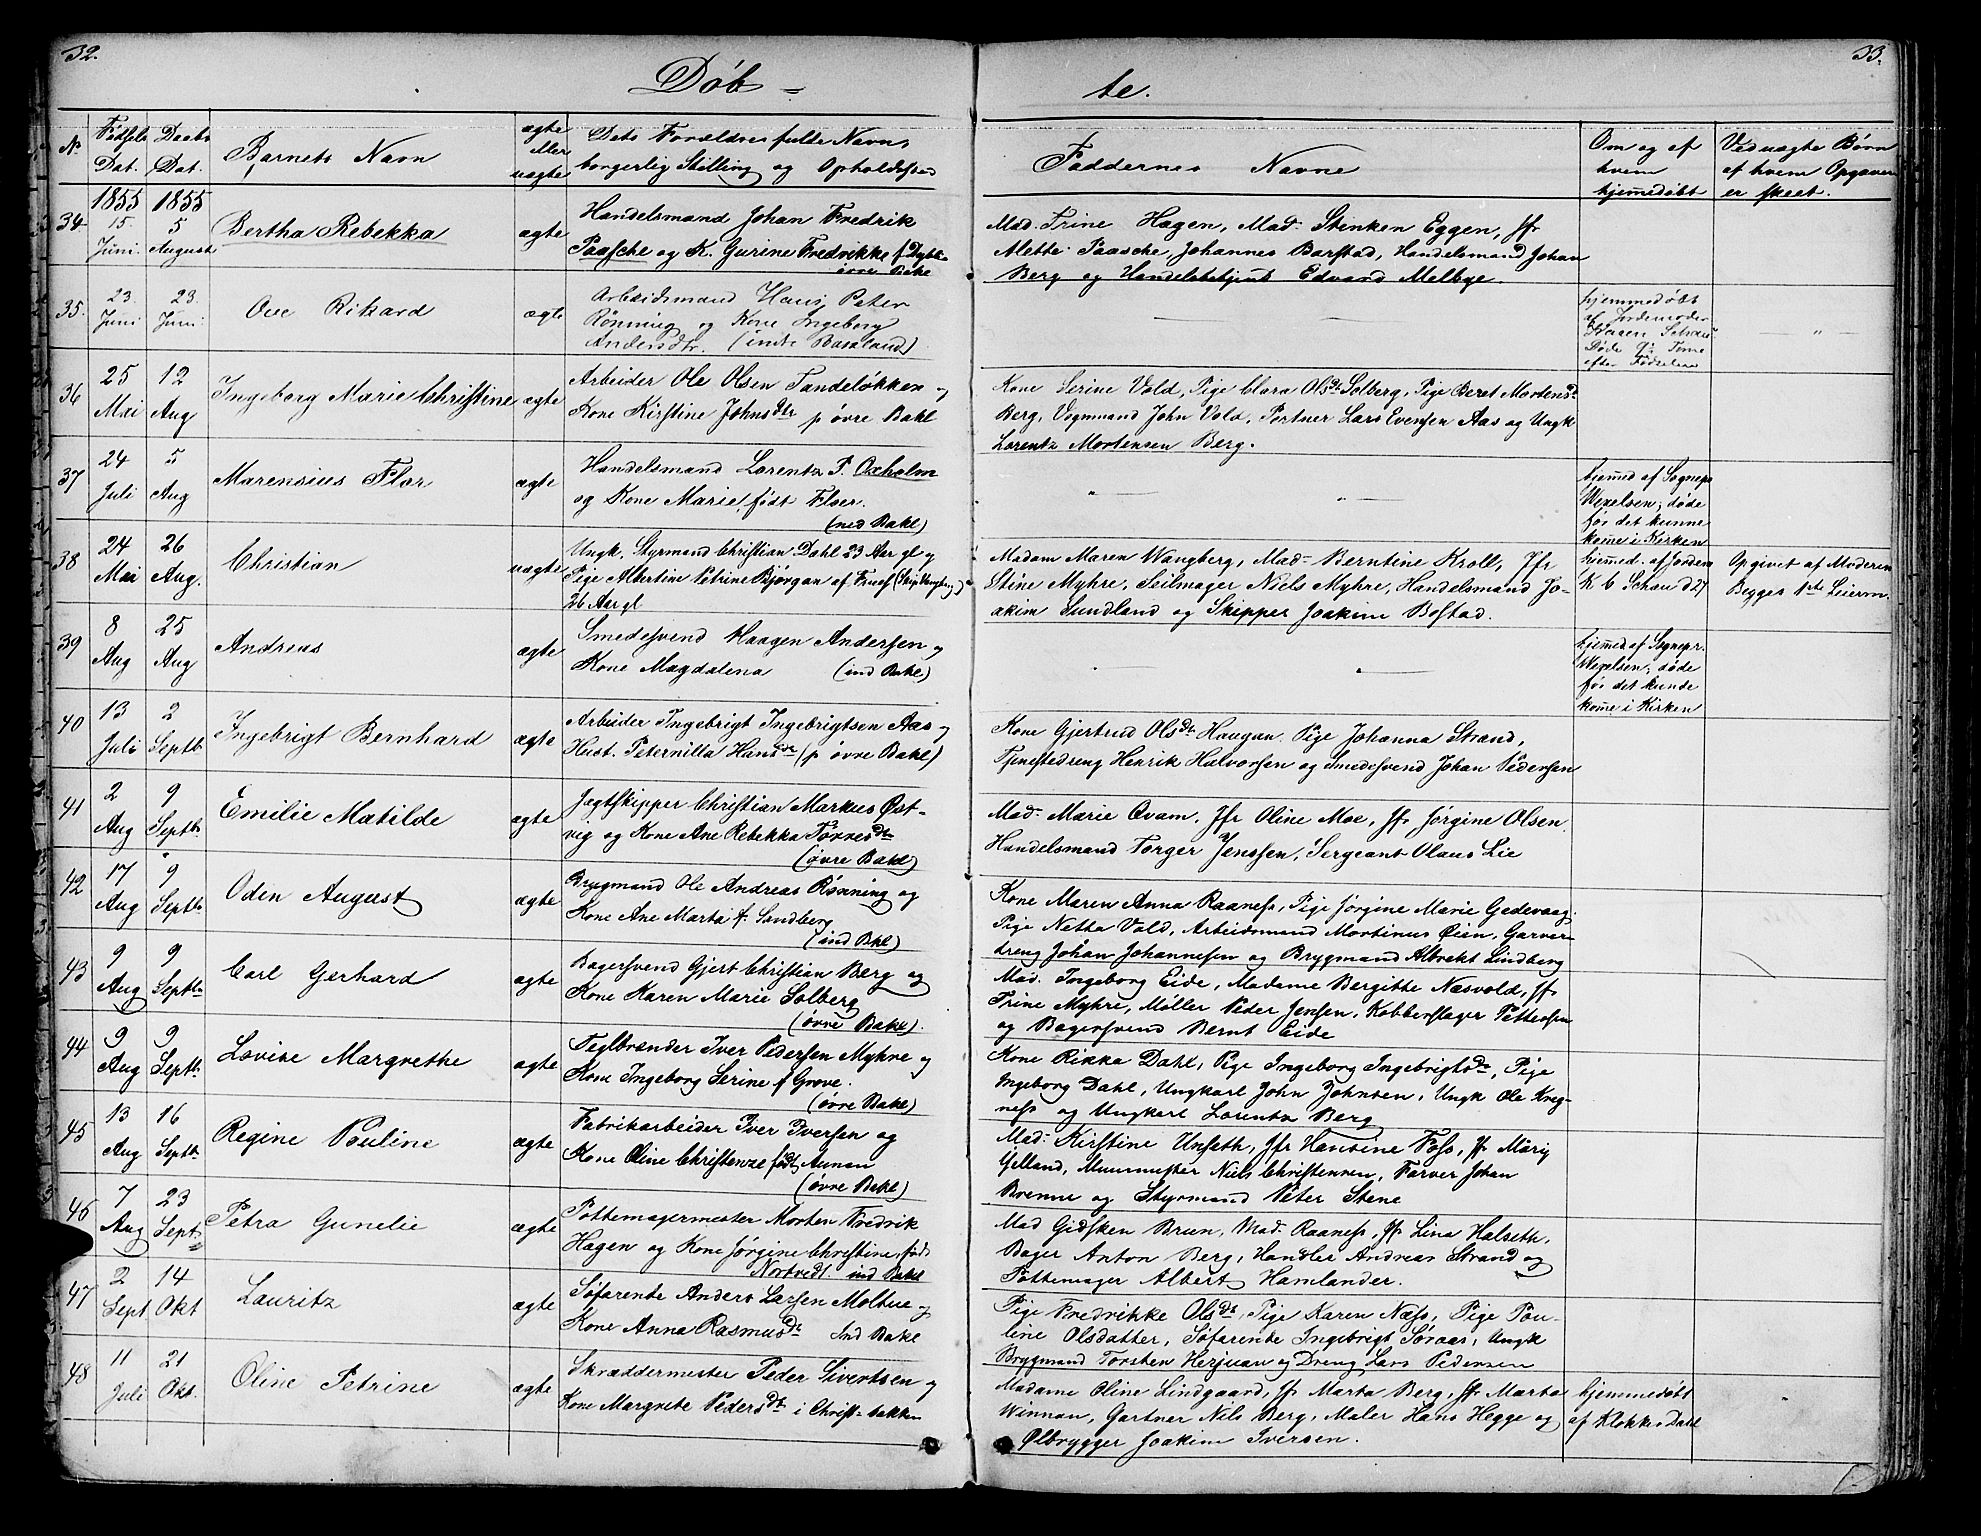 32.
33.
Døb-
te.
No
Fødsels
Dat.
Daabs
Dat.
Barnets Navn
ægte
eller
uægte
Dets Forældres fulde Navn,
borgerlig Stilling og Opholdssted
Faddernes Navne
Om og af
hvem
hjemmedøbt
Ved uægte Børn
af hvem Opgaven
er skeet.
1855
1855
34
15.
Juni
5
August
Bertha Rebekka
ægte
Handelsmand Johan Fredrik
Paasche og K. Gurine Fredrikke f
øvre Bakl
Mad. Trine Hagen, Mad. Stenken Eggen, Jfr
Mette Paasche, Johannes Barstad, Handelsmand Johan
Berg og Handelsbetjent Edvard Melbye.
35.
23.
Juni
23.
Juni
Ove Rikard
ægte
Arbeidsmand Hans Peter
Rønning og Kone Ingeborg
Andersdtr. (indre Bakland)
hjemmedøbt
af Jordemoder
Døde
efter Fødselen
36
25
Mai
12
Aug
Ingeborg Marie Christine
ægte
Arbeider Ole Olsen Tandeløkken og
Kone Kirstine Johnsdtr p øvre Bakl
Kone Serine Vold, Pige Clara Olsdt Solberg, Pige Beret Mortensd
Berg, Vognmand John Vold, Portner Lars Evensen Aas og Ungk
Lorentz Mortensen Berg.
37
24
Juli
5
Aug
Marensius Floer
ægte
Handelsmand Lorentz P. Oxholm
og Kone Marie, født Floer.
(ned Bakl)
hjemed af Sognepr
Wexelsen, døde
før det kunne
kome i Kirken
38
24
Mai
26
Aug.
Christian
uægte
Ungk. Styrmand Christian Dahl 23 Aar gl og
Pige Albertine Petrine Bjørgan af
26 Aar gl
Madam Maren Wangberg, Mad. Berntine Kroll, Jfr
Stine Myhre, Seilmager Niels Myhre, Handelsmand Jo-
akim Sundland og Skipper Joakim Bostad.
hjemed. af Jordem
K C Schou d 27
Opgivet af Moderen
Begges 1ste Leierm.
39
8
Aug
25
Aug
Andreas
ægte
Smedesvend Haagen Andersen og
Kone Magdalena (ind Bakl)
hjemed af Sognepr.
Wexelsen, døde
før det kunde
kome i Kirken
40
13
Juli
2
Septb
Ingebrigt Bernhard
ægte
Arbeider Ingebrigt Ingebrigtsen Aas og
Hust. Peternilla Hansdt (p øvre Bakl)
Kone Gjertrud Olsdt Haugan. Pige Johanna Strand,
Tjenestedreng Henrik Halvorsen og Smedesvend Johan Pedersen
41
2
Aug
9
Septb
Emilie Matilde
ægte
Jægtskipper Christian Markus Øst-
vig og Kone Ane Rebekka Tørresdt
(øvre Bakl)
Mad. Marie Qvam, Jfr Oline Moe, Jfr Jørgine Olsen.
Handelsmand Torger Jenssen, Sergeant Olaus Lie
42
17
Aug
9
Septb
Oden August
ægte
Brygmand Ole Andreas Rønning og
Kone Ane Marta f. Sandberg
(ind Bkl)
Kone Maren Anna Raaness, Pige Jørgine Marie Gedevaag.
Pige Netta Vold, Arbeidsmand Mortinus Øien, Garver
dreng Johan Johannesen og Brygmand Albrekt Lindberg
43
9
Aug
9
Septb
Carl Gerhard
ægte
Bagersvend Gjert Christian Berg og
Kone Karen Marie Solberg
(øvre Bakl).
Mad. Ingeborg Eide, Madame Bergitte Næsvold, Jfr
Trine Myhre, Møller Peder Jensen, Kobberslager Pettersen
og Bagersvend Bernt Eide
44
9
Aug
9
Septb
Lovise Margrethe
ægte
Teglbrænder Iver Pedersen Myhre og
Kone Ingeborg Serine f Grove.
(øvre Bakl)
Kone Rikka Dahl, Pige Ingeborg Ingebrigtsdt, Pige
Ingeborg Dahl, Ungkarl John Johnsen, Ungk Ole Kreg-
ness og Ungkarl Lorentz Berg
45
13
Aug
16
Septb
Regine Pouline
ægte
Fabrikarbeider Iver Iversen og
Kone Oline Christenze født Aunan
(øvre Bakl)
Mad. Kirstine Unseth, Jfr Hansine Foss, Jfr Marig
Gelland, Muurmester Niels Christensen, Farver Johan
Brenne og Styrmand Peter Stene
46
7
Aug
23
Septb
Petra Gunelie
ægte
Pottemagermester Morten Fredrik
Hagen og Kone Jørgine Christine, født
Nortvedt. ind Bakl
Mad Gidsken Brun, Mad. Raaness, Jfr Lina Halseth.
Bager Anton Berg, Handler Andreas Strand og
Pottemager Albert Hamlander.
47
2
Sept
14
Okt
Lauritz
ægte
Søfarende Anders Larsen Moltue og
Kone Anna Rasmusdt Ind Bakl
Pige Fredrikke Olsdt, Pige Karen Næss, Pige Pou-
line Olsdatter, Søfarende Ingebrigt Søraas, Ungk
Brygmand Torsten Herjuan og Dreng Lars Pedersen
48
11
Juli
21
Okt.
Oline Petrine
ægte
Skræddermester Peder Sivertsen og
Kone Margrete Pedersdt i Christ.bakken
Madame Oline Lindgaard, Jfr Marta Berg, Jfr Marta
Winnan, Gartner Nils Berg, Maler Hans Hegge og
Ølbrygger Joakim Iversen.
hjemmedøbt
af Klokker Dahl